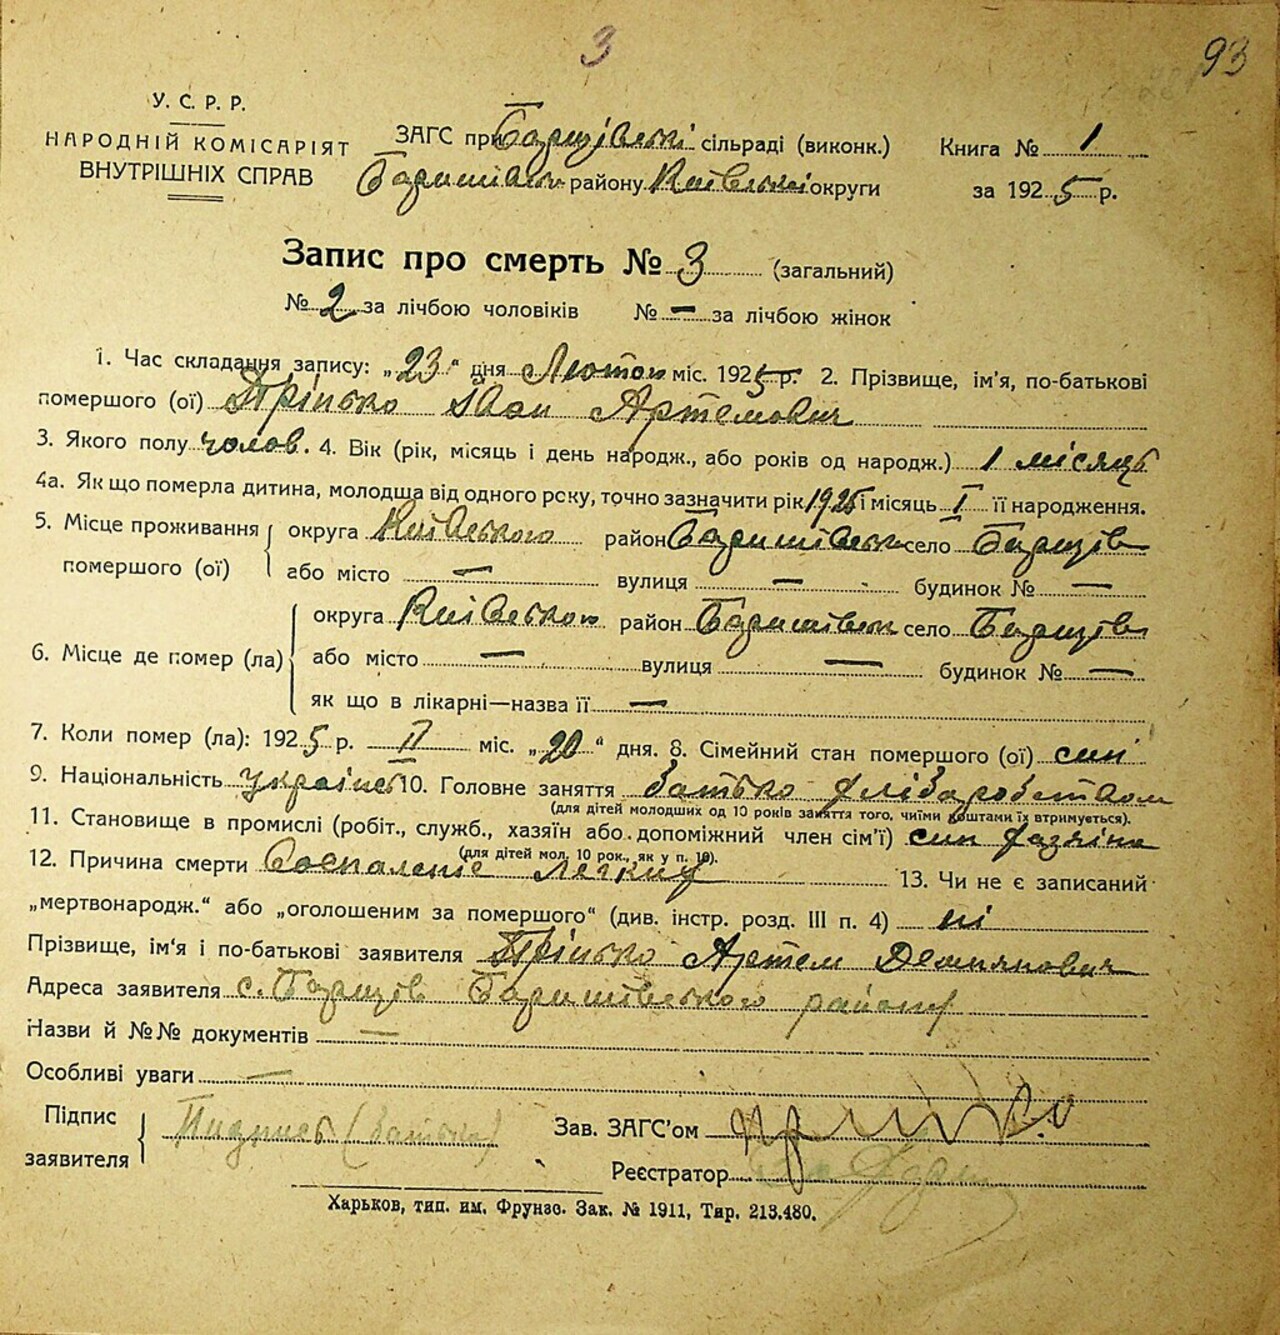 3
93
У. С. Р. Р.
НАРОДНІЙ КОМІСАРІЯТ
ВНУТРІШНІХ СПРАВ
ЗАГС при сільраді (виконк.)
Баришівськ району Київської округи
Книга № 1
за 1925 р.
Запис про смерть № 3 (загальний)
№ 2 за лічбою чоловіків № — за лічбою жінок
1. Час складання запису: „23“ дня Лютого міс. 1925 р. 2. Прізвище, ім'я, по-батькові
помершого (ої) Грінько Іван Артемович
3. Якого полу чолов. 4. Вік (рік, місяць і день народж., або років од народж.) 1 місяць
4а. Як що померла дитина, молодша від одного року, точно зазначити рік 1925 і місяць I її народження.
5. Місце проживання округа Київського район Баришівськ село
помершого (ої) або місто — вулиця — будинок № —
округа Київського район Баришівськ село
6. Місце де помер (ла) або місто — вулиця — будинок № —
як що в лікарні—назва її —
7. Коли помер (ла): 1925 р. II міс. „20“ дня. 8. Сімейний стан помершого (ої) син
9. Національність українець 10. Головне заняття батько хліборобством
(для дітей молодших од 10 років заняття того, чиїми коштами їх втримується).
11. Становище в промислі (робіт., служб., хазяїн або допоміжний член сім'ї) син хазяїна
(для дітей мол. 10 рок., як у п. 10).
12. Причина смерти Воспаленіе легких 13. Чи не є записаний
„мертвонародж.“ або „оголошеним за помершого“ (див. інстр. розд. III п. 4) ні
Прізвище, ім'я і по-батькові заявителя Грінько Артем Демянович
Адреса заявителя с. Баришівського району
Назви й №№ документів —
Особливі уваги —
Підпис
заявителя
(батько)
Зав. ЗАГС'ом
Реєстратор
Харьков, тип. им. Фрунзе. Зак. № 1911, Тир. 213.480.